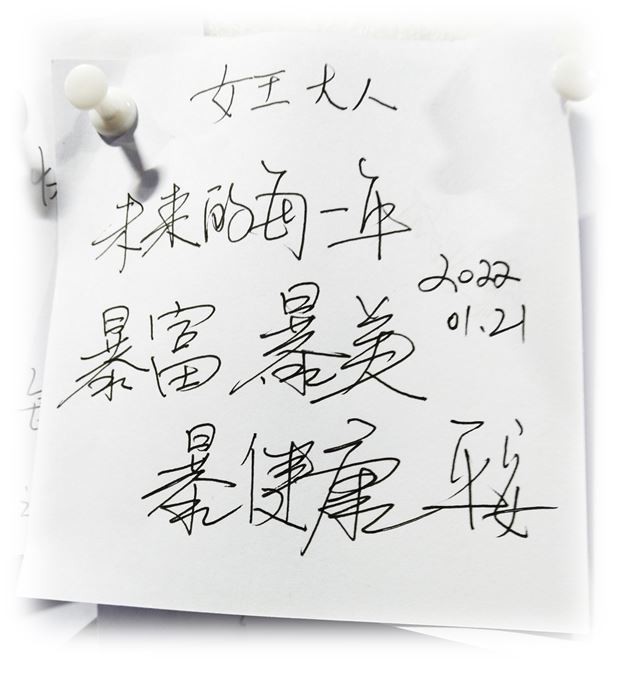 女王大人
未来的每一年
2022
01.21
暴富 暴美
暴健康 平安